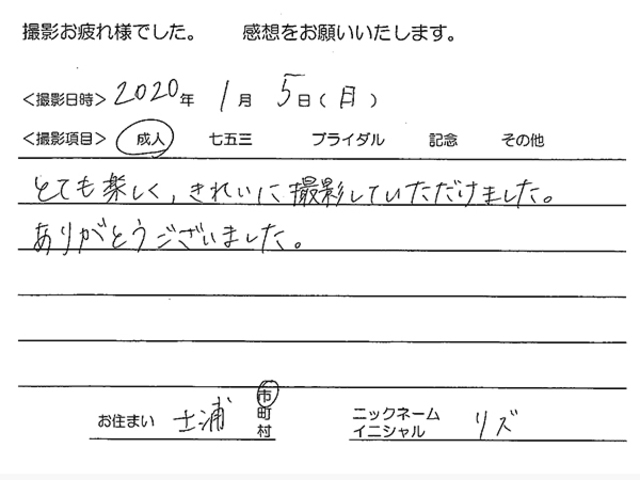 撮影お疲れ様でした。 感想をお願いいたします。
＜撮影日時＞2020年 1月 5日(日)
＜撮影項目＞ 成人 七五三 ブライダル 記念 その他
とても楽しく、きれいに撮影していただけました。
ありがとうございました。
お住まい 土浦 市町村 ニックネーム イニシャル リズ